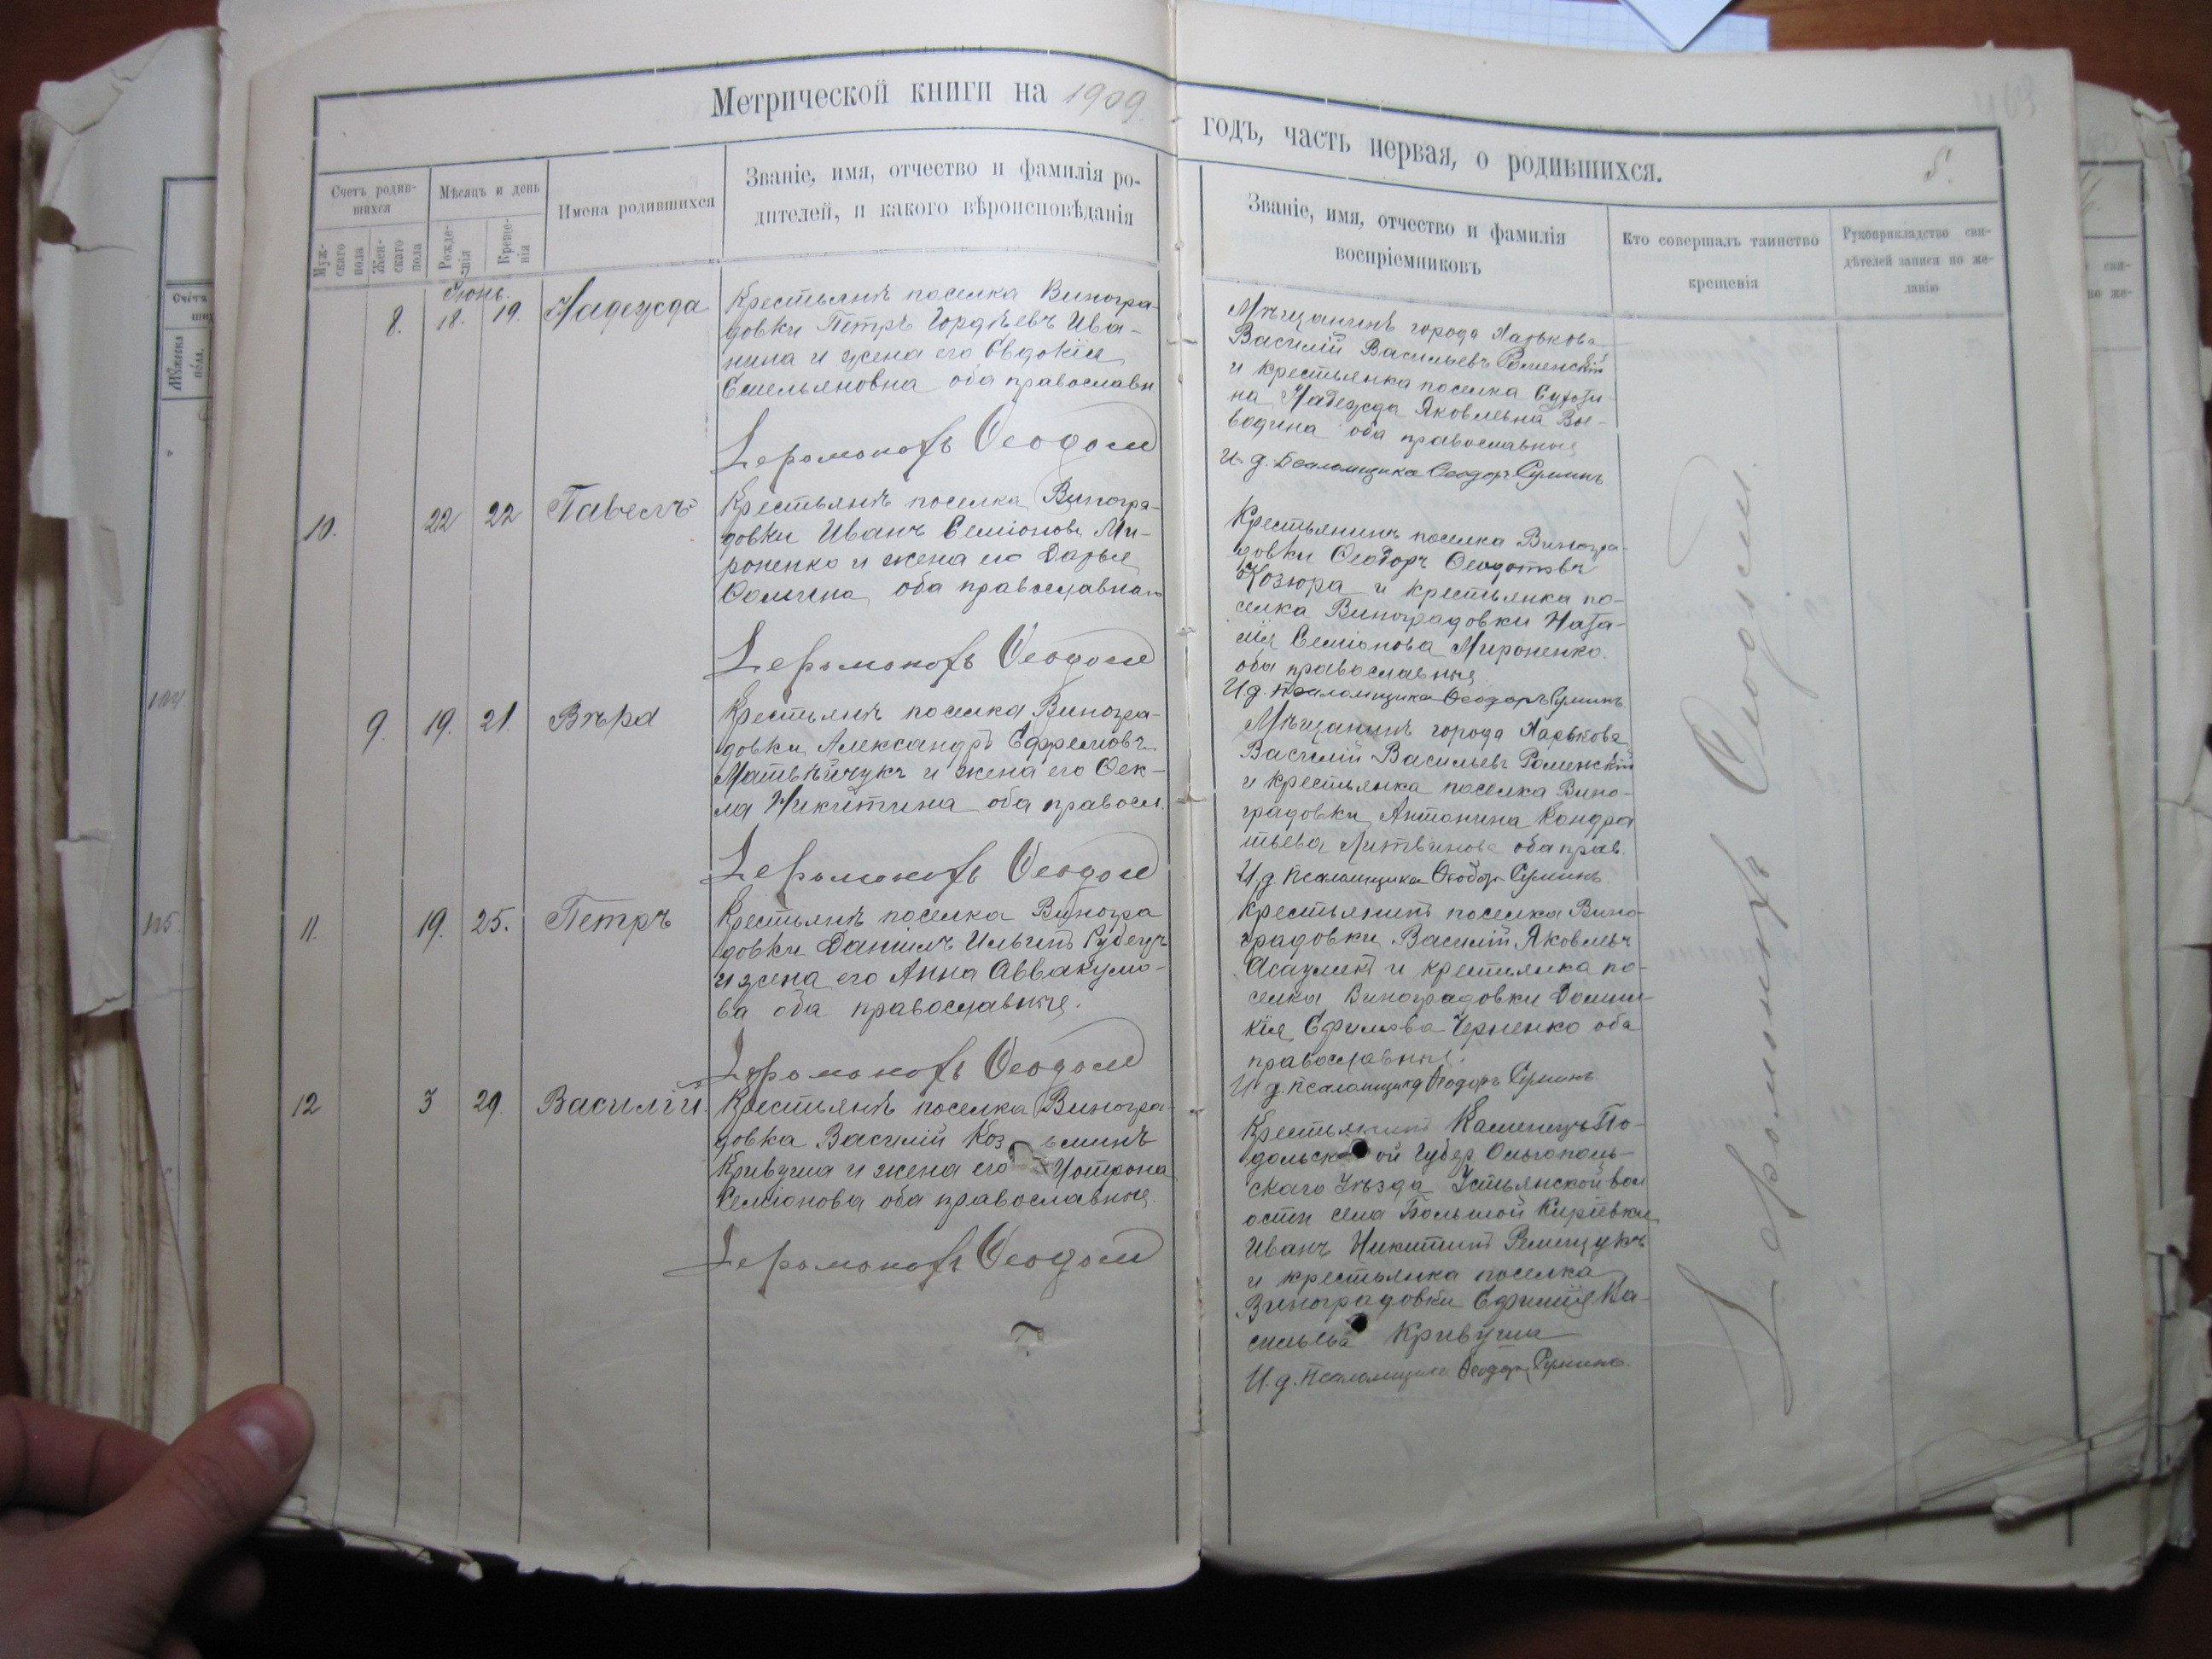 Метрической книги на 1909
годъ, часть первая, о родившихся.
8.
Счетъ родив-
шихся
Муж-
скаго
пола
Жен-
скаго
пола
Мѣсяцъ и день
Рожде-
нія
Креще-
нія
Имена родившихся
Званіе, имя, отчество и фамилія ро-
дителей, и какого вѣроисповѣданія
Званіе, имя, отчество и фамилія
воспріемниковъ
Кто совершалъ таинство
крещенія
Рукоприкладство сви-
дѣтелей записи по же-
ланію
Іюнь.
8. 18. 19. Надежда
Крестьянъ поселка Виногра-
довки Петръ Гордѣевъ Ива-
нила и жена его Евдокія
Емельяновна оба православн
Іеромонахъ Ѳеодосій
Мѣщанинъ города Харькова
Василій Васильевъ Роменскій
и крестьянка поселка
на Надежда Яковлевна Вое-
водина оба православные
И. д. Псаломщика Ѳеодоръ
10. 22 22 Павелъ
Крестьянъ поселка Виногра-
довки Иванъ Семіоновъ Ми-
роненко и жена его Дарья
Ѳомина оба православные
Іеромонахъ Ѳеодосій
Крестьянинъ поселка Виногра-
довки Ѳеодоръ Ѳеодотовъ
Козюра и крестьянка по-
селка Виноградовки Ната-
лія Семіонова Мироненко.
оба православные
И. д. Псаломщика Ѳеодоръ
9. 19. 21. Вѣра
Крестьянъ поселка Виногра-
довки Александръ Ефремовъ
Матвѣйчукъ и жена его Ѳек-
ла Никитина оба правосл.
Іеромонахъ Ѳеодосій
Мѣщанинъ города Харькова
Василій Васильевъ Роменскій
и крестьянка поселка Вино-
градовки Антонина Кондра
тьева Литвинова оба прав.
И. д. Псаломщика Ѳеодоръ
11. 19. 25. Петръ
Крестьянъ поселка Виногра
довки Даніилъ Ильинъ Рубецъ
и жена его Анна Аввакумо-
ва оба православные.
Іеромонахъ Ѳеодосій
Крестьянинъ поселка Вино-
градовки Василій Яковлевъ
Асауленко и крестьянка по-
селка Виноградовки Домни-
кія Ефимова Черненко оба
православные.
И. д. Псаломщика Ѳеодоръ
12 3 29. Василій.
Крестьянъ поселка Виногра-
довка Василій Козьминъ
Кривуша и жена его Мотрона
Семіонова оба православные.
Іеромонахъ Ѳеодосій
Крестьянинъ Каменецъ По-
дольской Губер Ольгополь-
скаго Уѣзда Устьянской вол
ости села Большой Киріевки
Иванъ Никитинъ Ремищукъ
и крестьянка поселка
Виноградовки Ефимія Ва-
сильева Кривуша
И. д. Псаломщика Ѳеодоръ
Іеромонахъ Ѳеодосій